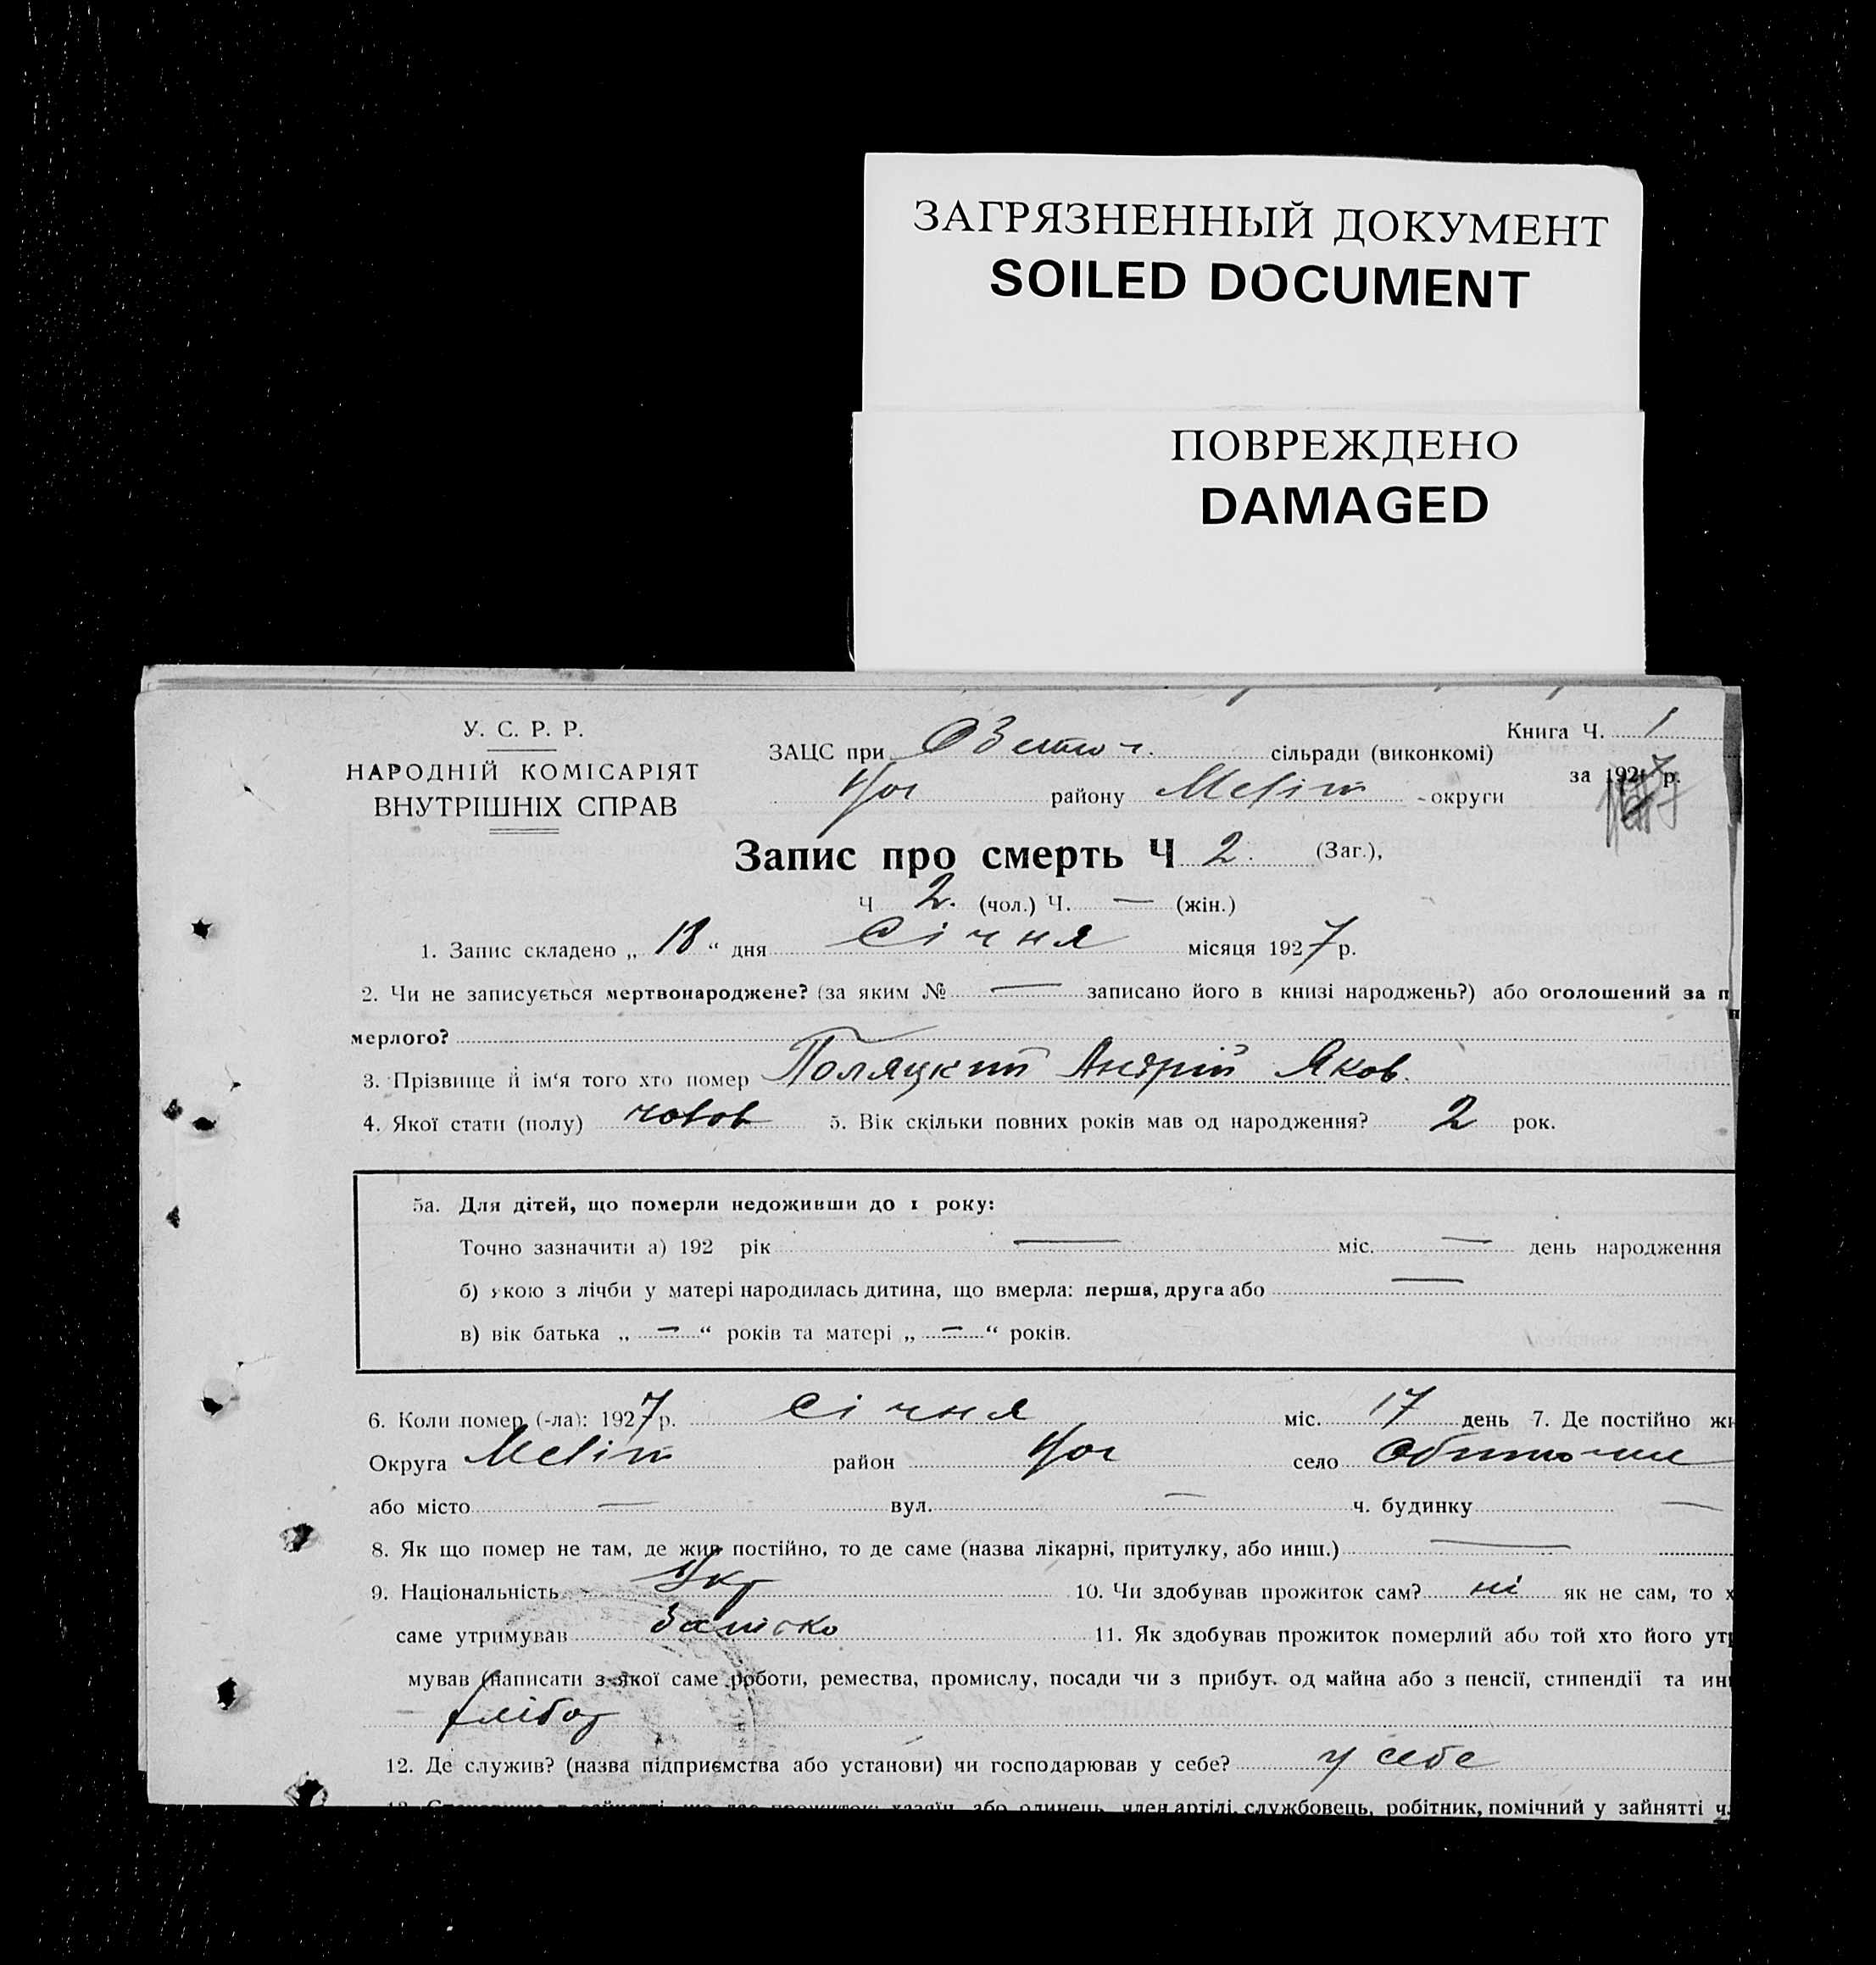 ЗАГРЯЗНЕННЫЙ ДОКУМЕНТ
SOILED DOCUMENT
ПОВРЕЖДЕНО
DAMAGED
У. С. Р. Р.
НАРОДНІЙ КОМІСАРІЯТ
ВНУТРІШНІХ СПРАВ
Книга Ч. 1
ЗАЦС при сільради (виконкомі)
за 1927 р.
району Меліт округи
Запис про смерть Ч 2. (Заг.),
Ч 2. (чол.) Ч. — (жін.)
1. Запис складено „ 18 “ дня Січня місяця 1927 р.
2. Чи не записується мертвонароджене? (за яким № — записано його в книзі народжень?) або оголошений за п
мерлого?
3. Прізвище й ім‘я того хто помер Поляцкий Андрій Яков.
4. Якої стати (полу) чолов 5. Вік скільки повних років мав од народження? 2 рок.
5а. Для дітей, що померли недоживши до 1 року:
Точно зазначити а) 192 рік — міс. — день народження
б) якою з лічби у матері народилась дитина, що вмерла: перша, друга або —
в) вік батька „ — “ років та матері „ — “ років.
6. Коли помер (-ла): 1927 р. Січня міс. 17 день 7. Де постійно жи
Округа Меліт район село
або місто — вул. — ч. будинку —
8. Як що помер не там, де жив постійно, то де саме (назва лікарні, притулку, або инш.) —
9. Національність Укр 10. Чи здобував прожиток сам? ні як не сам, то х
саме утримував батько 11. Як здобував прожиток померлий або той хто його утр
мував (написати з якої саме роботи, ремества, промислу, посади чи з прибут. од майна або з пенсії, стипендії та ин
— хлібор
12. Де служив? (назва підприємства або установи) чи господарював у себе? у себе
або одинець, член артілі, службовець, робітник, помічний у зайнятті ч.